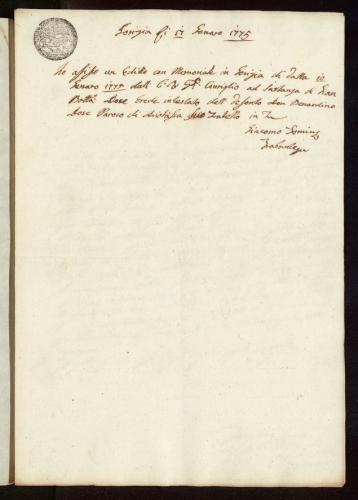 Gorizia li 17 Genaro 1775
Io affissi un Editto con Memoriale in Gorizia di Data 10
Genaro 1775 dell' C: R: Consiglio ad Instanza di Gian
Batta Dose Erede intestato dell' Defonto don Bernardino
Dose Paroco di suo Fratello in
Giacomo